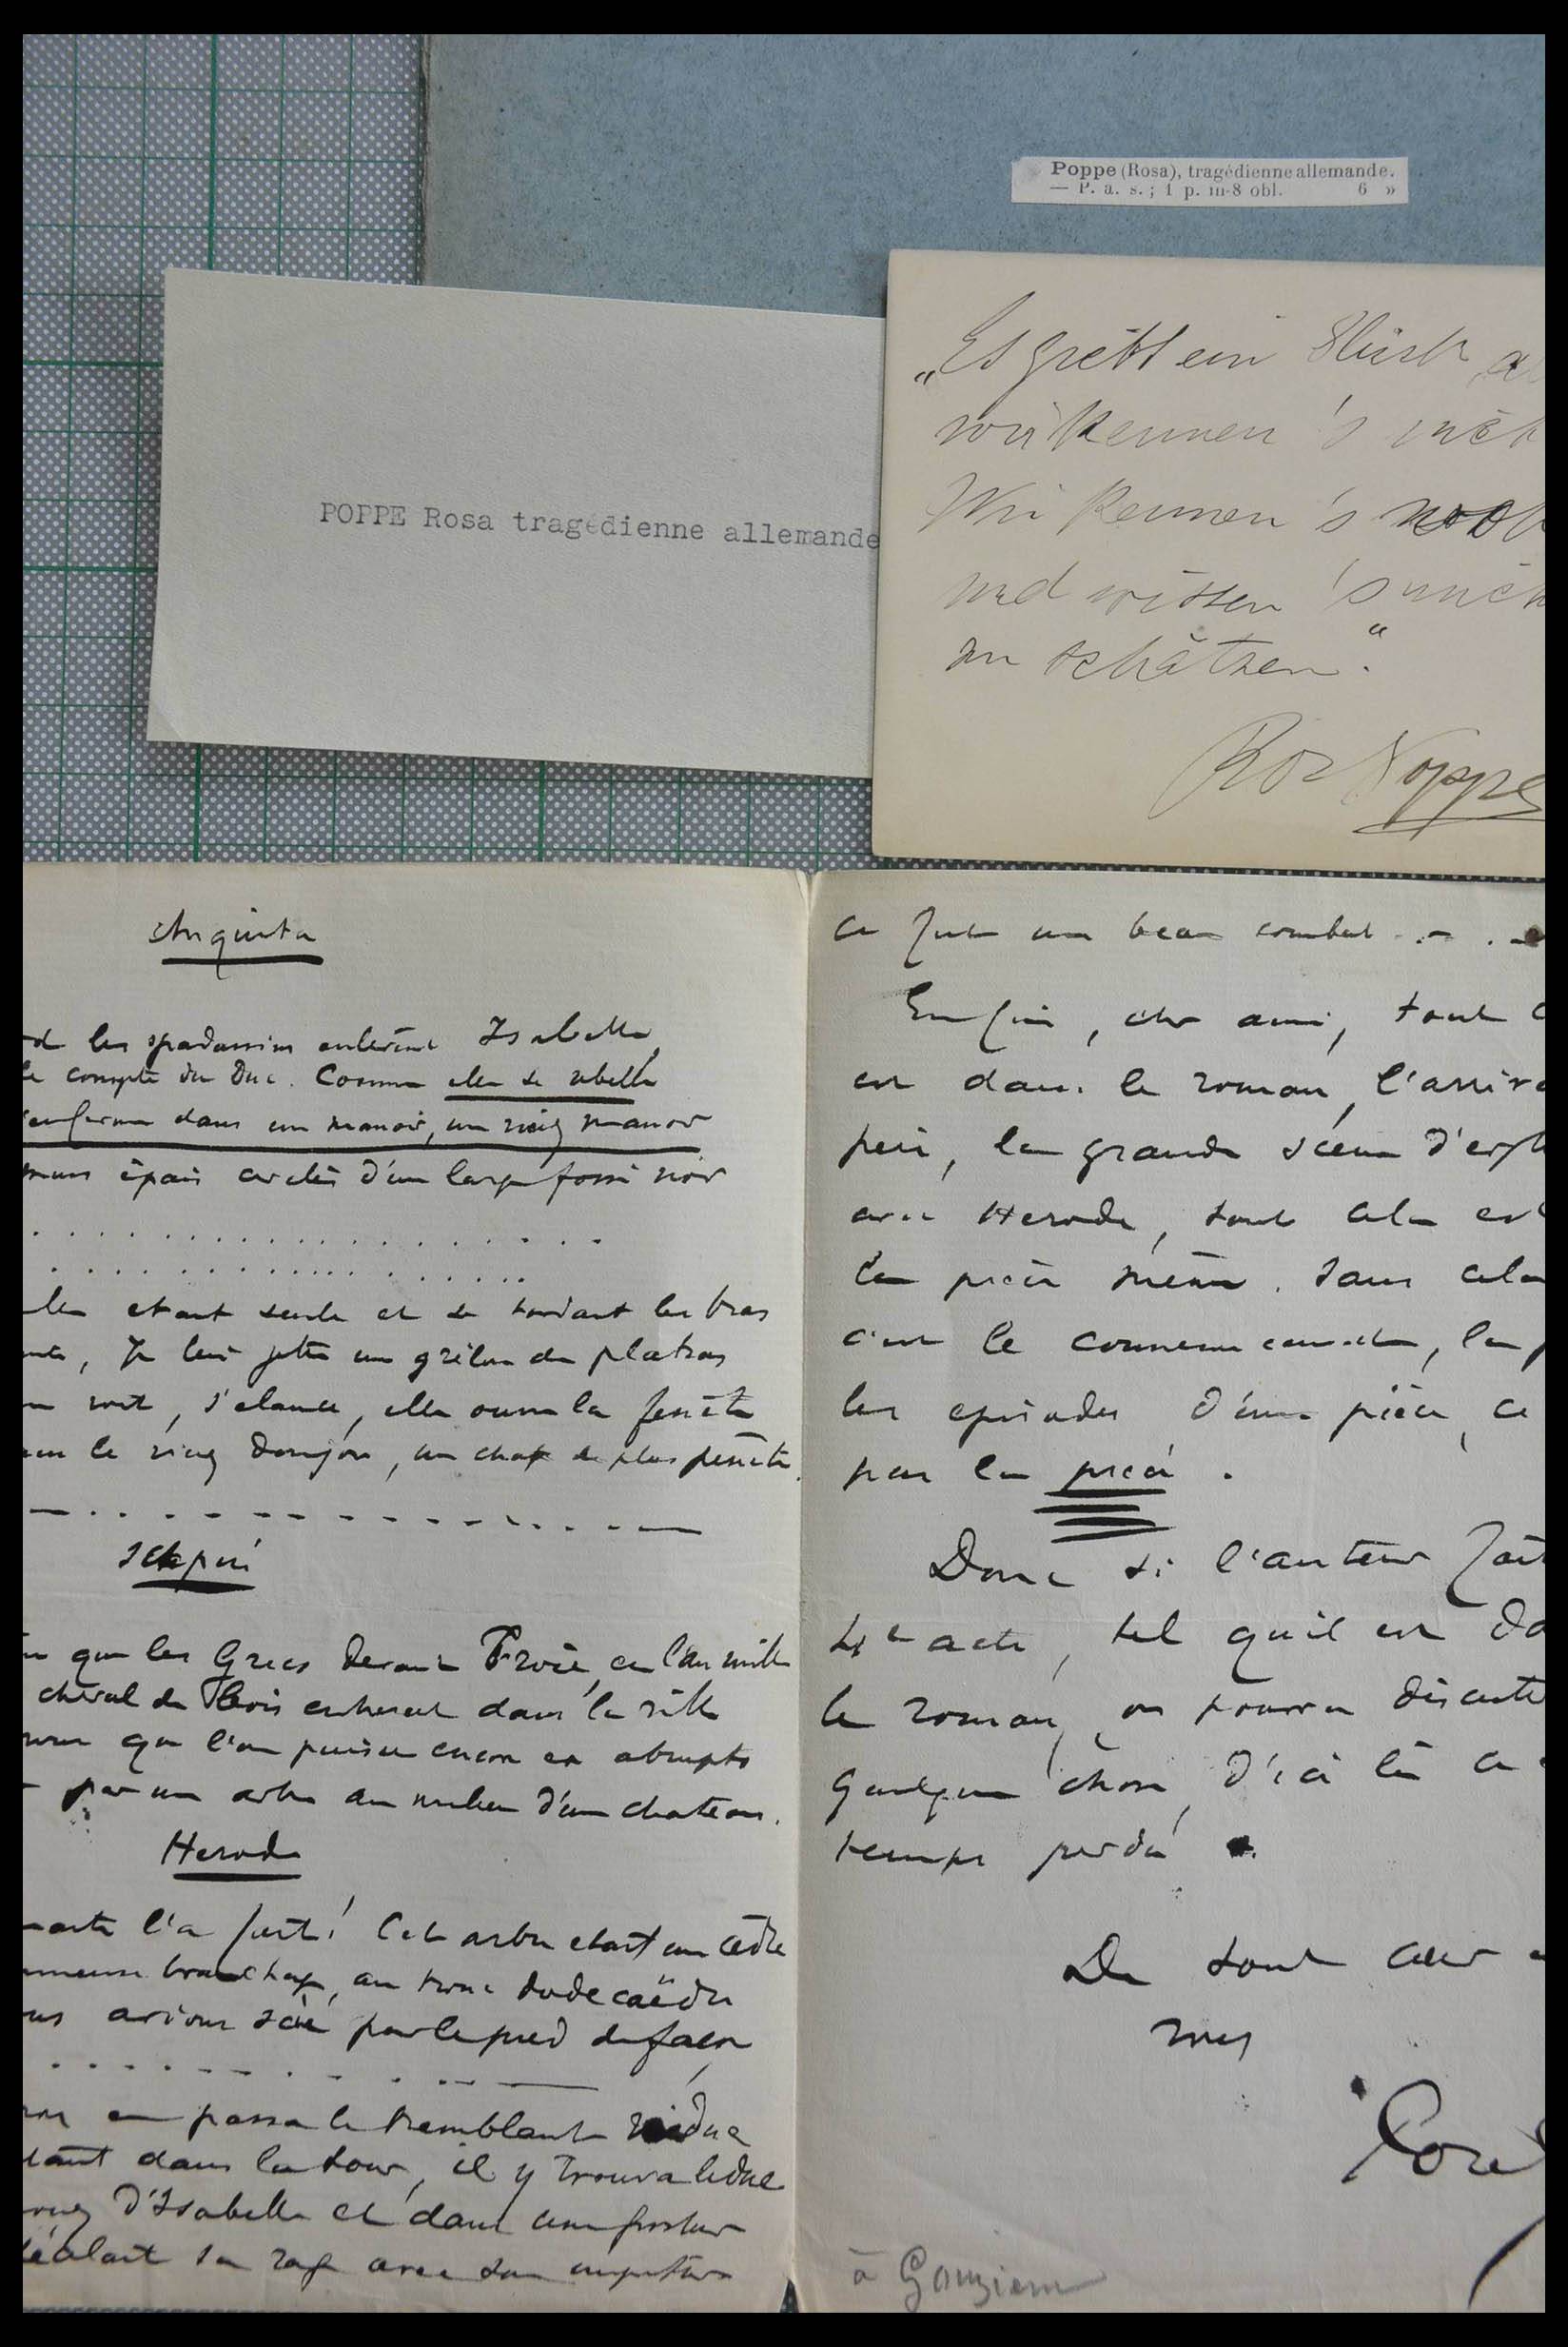 Poppe (Rosa), tragédienne allemande.
— P. a. s.; 1 p. in-8 obl. 6 »
POPPE Rosa tragédienne allemande
„Es giebt ein Glück, a
wir kennen's nich
Wir kennen's woh
und wissen's nich
zu schätzen."
Rosa Poppe
les spadassins enlevèrent Isabelle
le compte du Duc. Comme elle se rebella
enferma dans un manoir, un vieux manoir
murs épais cerclés d'un large fossé noir
. . . . . . . . . . . . . . . . . . . .
. . . . . . . . . . . . . . . . . .
etant seule et se tordant les bras
Je lui jette un grêlon de platras
voit, s'elance, elle ouvre la fenêtre
le vieux donjon, un chat
Scapin
que les Grecs devant Troie, en l'an mille
cheval de Bois entrerent dans la ville
que l'on puisse encore ex abrupto
par un arbre au milieu d'un chateau.
Herode
l'a fait! Cet arbre etait un cèdre
au tronc dodecaèdre
avions scié par le pied de façon
en passa le tremblant viaduc
dans la tour, il y trouva le duc
d'Isabelle et dans une posture
sa rage avec son imposture
Ce fut un beau combat . . . .
Enfin, cher ami, tout c
est dans le roman, l'arrivé
père, la grande scène d'expl
avec Herode, tout cela est
la pièce même. Sans cela
c'est le commencement, la
les episodes d'une pièce, ce
pas la pièce.
Donc si l'auteur fait
4e acte, tel qu'il est da
le roman, on pourra discuter
quelque chose, d'ici là c
temps perdu.
De tout cœur
Porel
à Gouzien